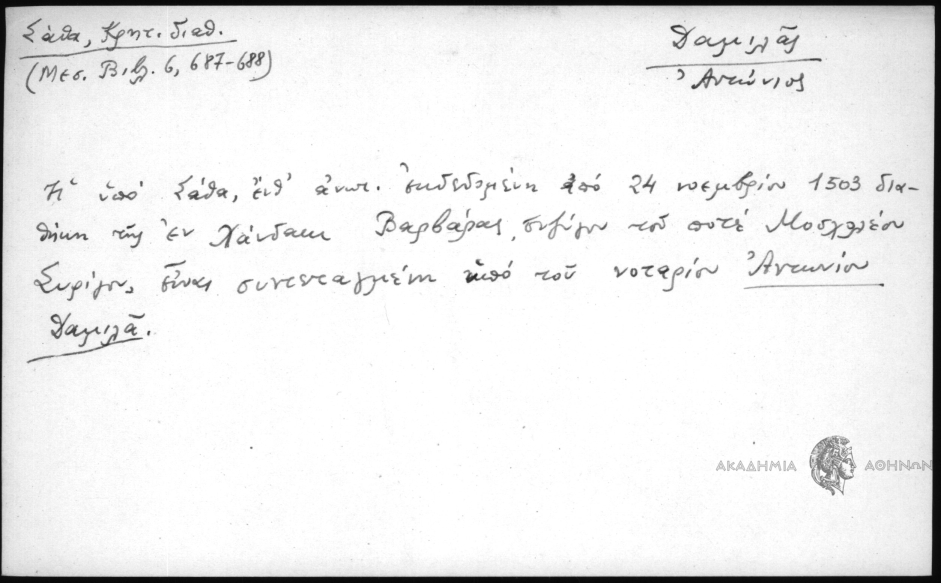 Σάθα, Κρητ. διαθ.
(Μεσ. Βιβλ. 6, 687-688)
Δαμιλᾶς
Ἀντώνιος
Ἡ ὑπό Σάθα, ἔνθ' ἀνωτ. ἐκδεδομένη ἀπό 24 νοεμβρίου 1503 δια-
θήκη τῆς ἐν Χάνδακι Βαρβάρας, συζύγου τοῦ ποτέ
Συρίγου, εἶναι συντεταγμένη ὑπό τοῦ νοταρίου Ἀντωνίου
Δαμιλᾶ.
ΑΚΑΔΗΜΙΑ ΑΘΗΝΩΝ